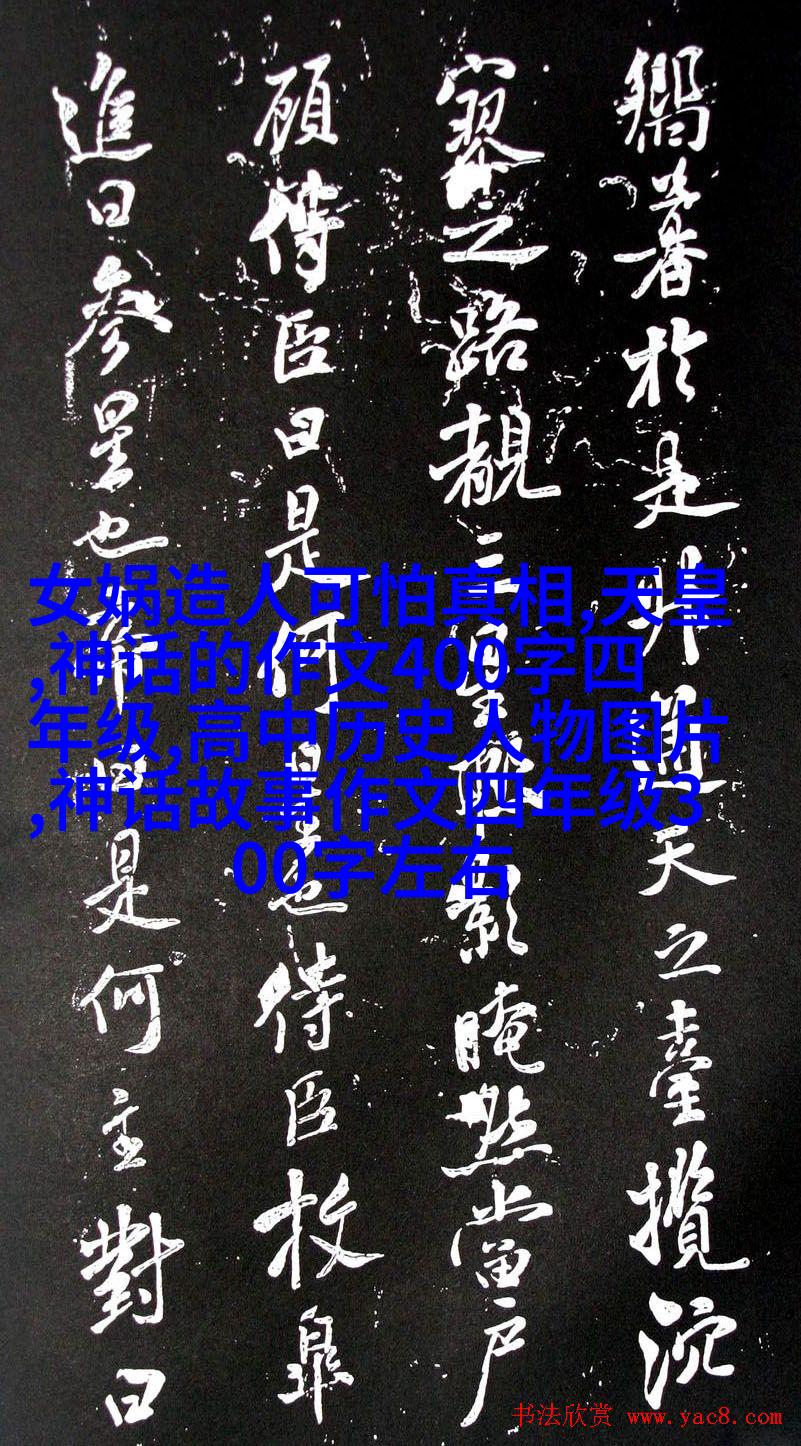 嚮暮於是升通天之臺攬沉
寥之路覩三星影晻當戶
顧侍臣曰是何星也侍臣枚皋
進曰參星也帝曰是何主對曰
女娲造人可怕真相,天皇
,神话的作文400字四
年级,高中历史人物图片
,神话故事作文四年级3
00字左右
书法欣赏 www.yac8.com